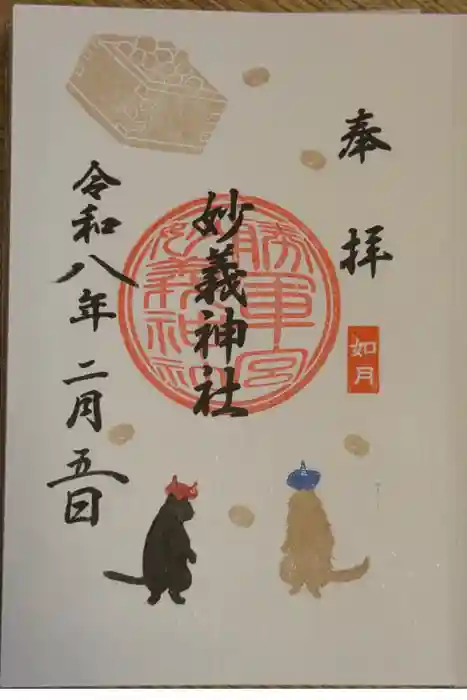 奉拝
如月
妙義神社
勝軍宮
妙義神社
令和八年二月五日